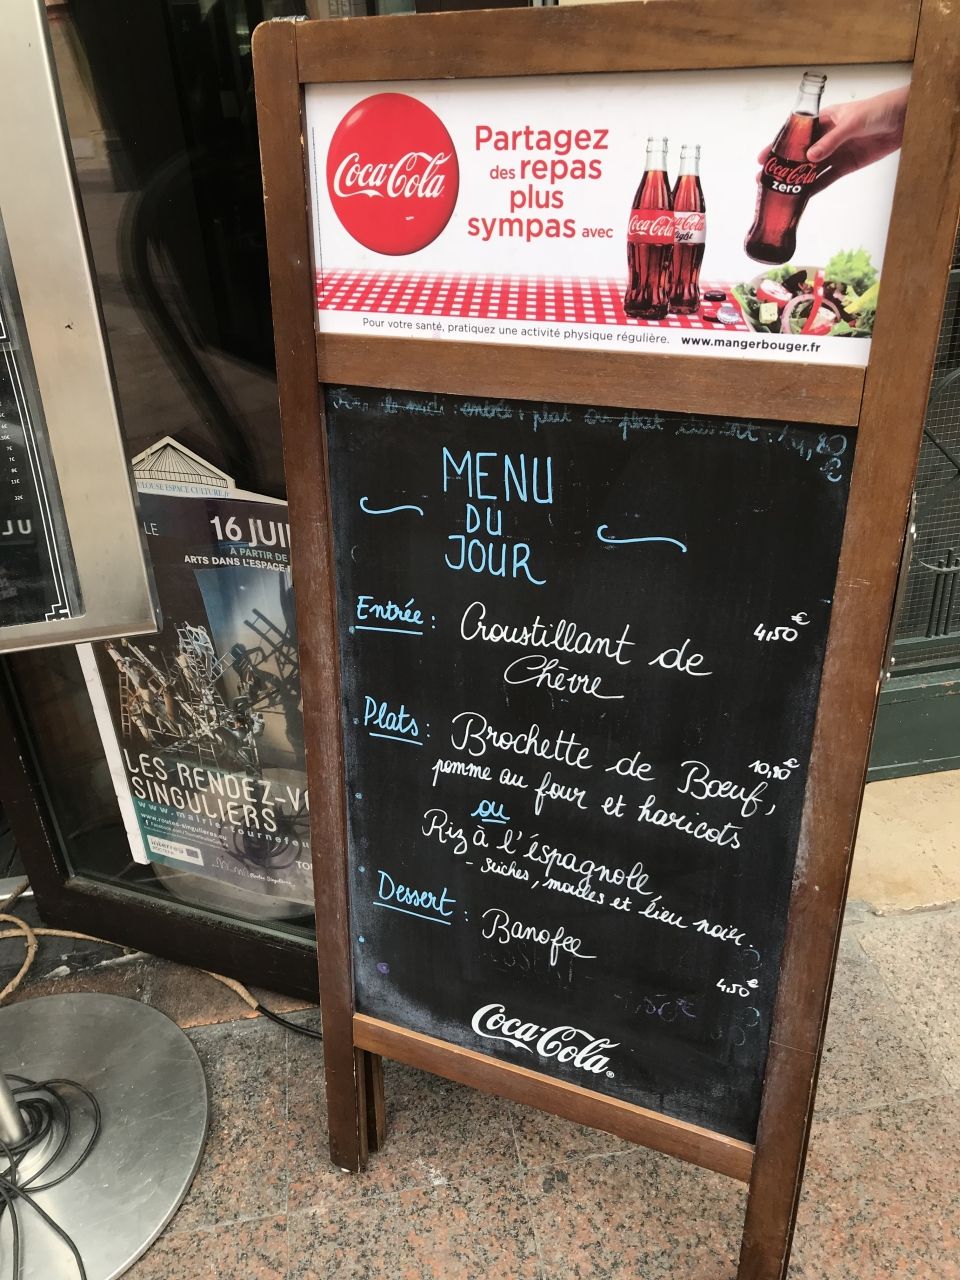 Coca-Cola
Partagez
des repas
plus
sympas avec
Coca-Cola
Coca-Cola
light
Coca-Cola
zero
Pour votre santé, pratiquez une activité physique régulière. www.mangerbouger.fr
le midi : entrée + plat ou plat dessert : 14,80
€
MENU
DU
JOUR
Entrée : Croustillant de 4,50€
Chèvre
Plats : Brochette de Bœuf, 10,90€
pomme au four et haricots
ou
Riz à l'éspagnole
- seiches, moules et lieu noir.
Dessert : Banofee
4,50€
Coca-Cola
ULOUSE ESPACE CULTURE.fr
LE
16 JUI
A PARTIR DE
ARTS DANS L'ESPACE
LES RENDEZ-V
SINGULIERS
www.mairie-tournefeu
www.routes-singulieres.eu
Interreg
TO
JU